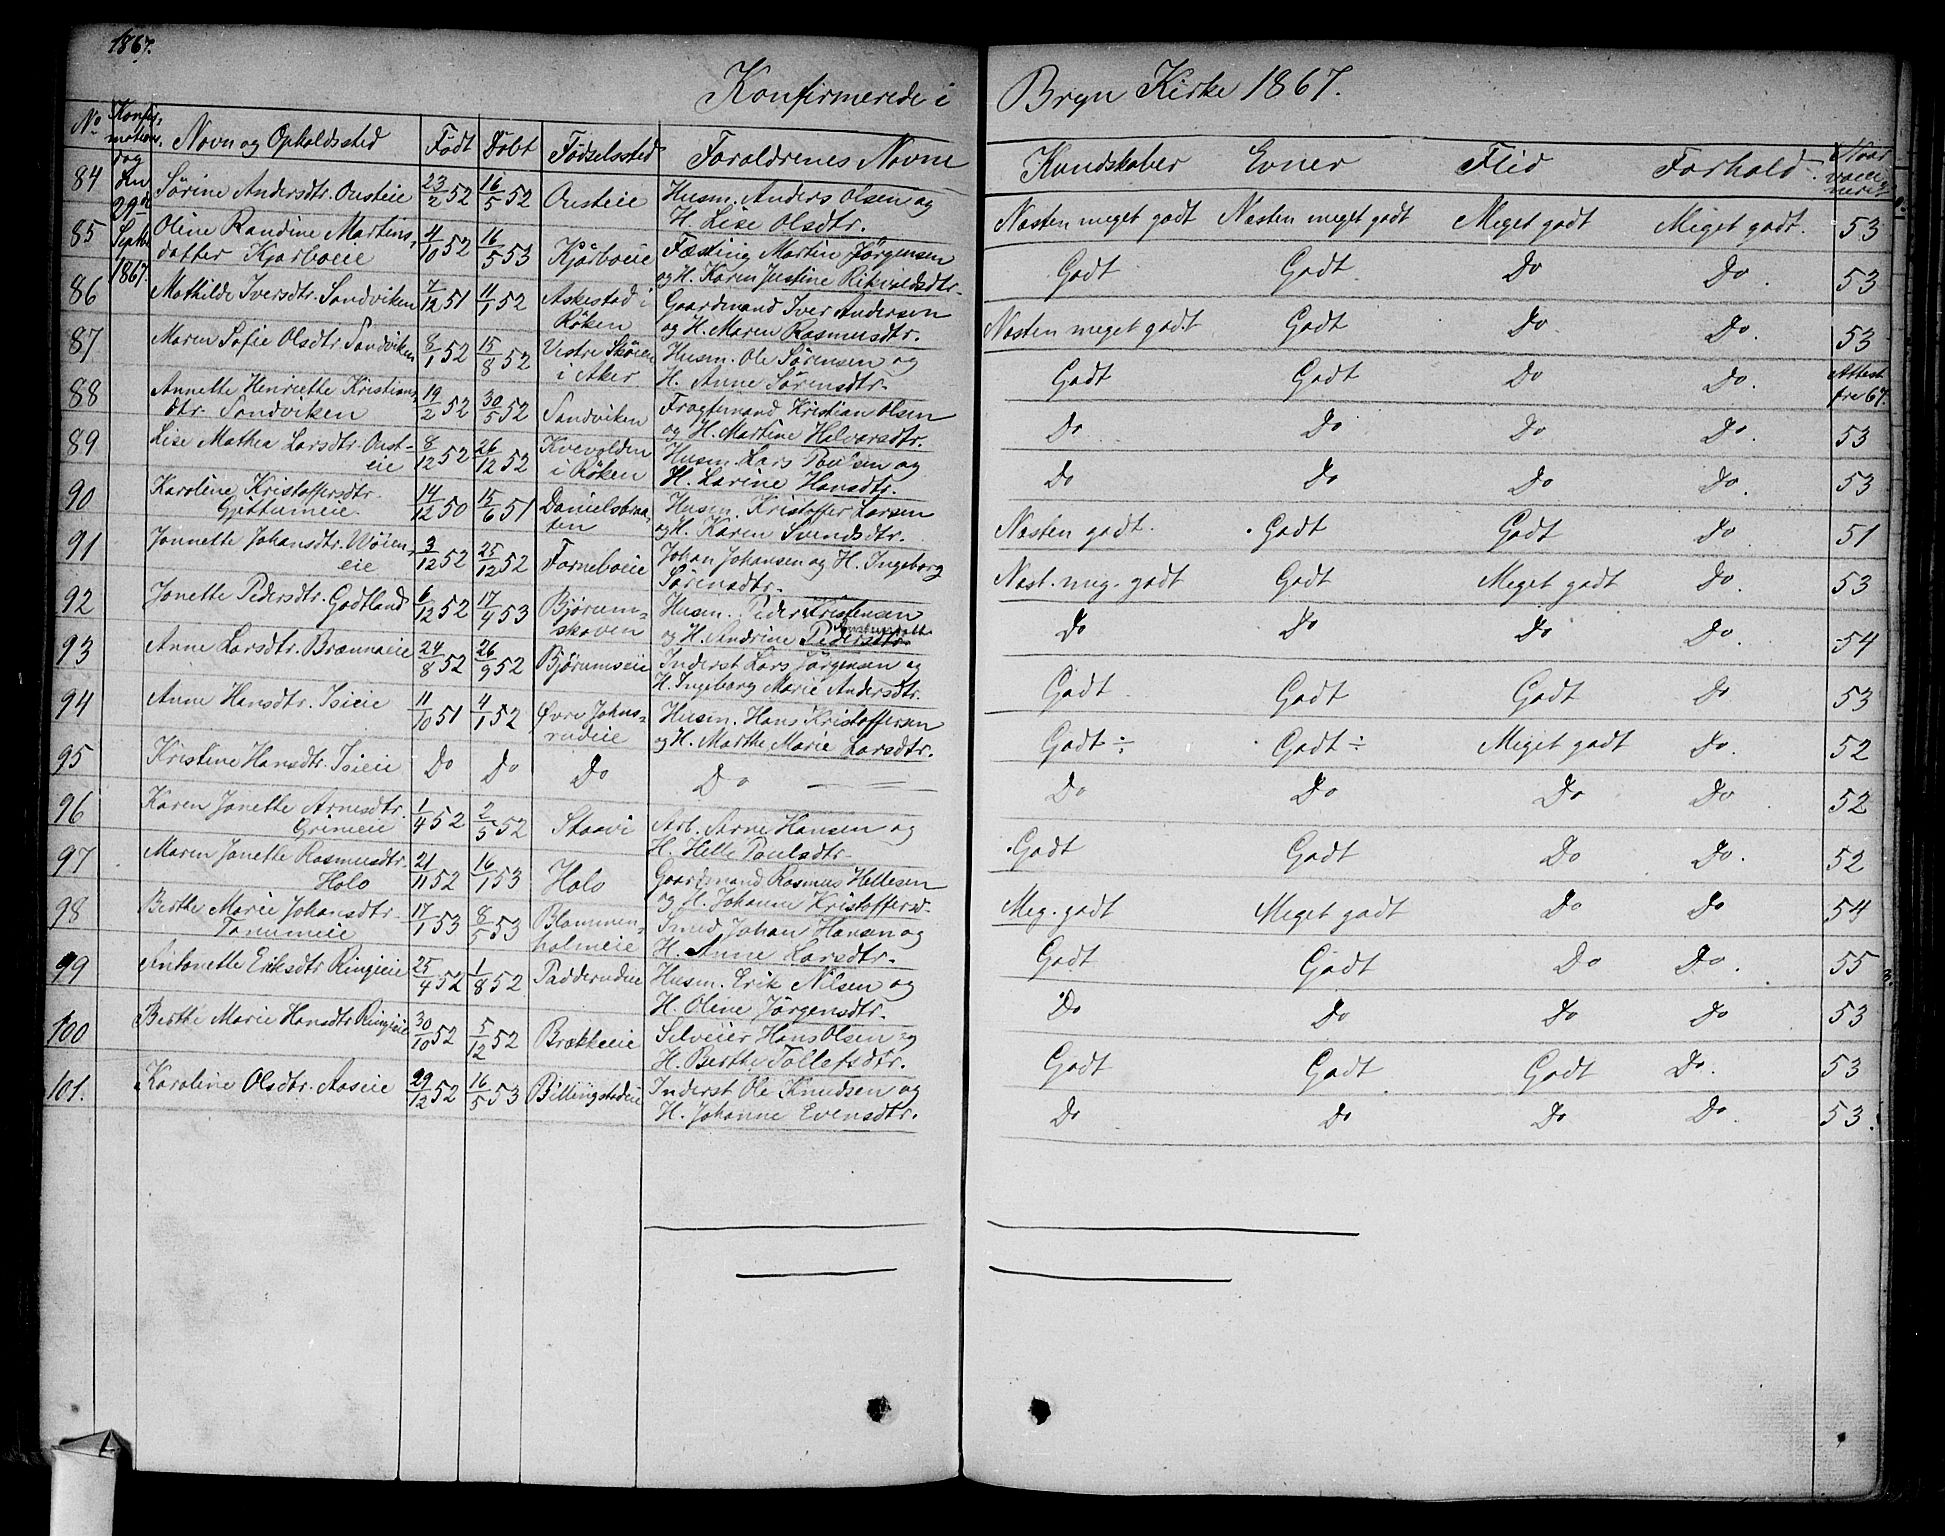 1867.
Konfirmerede i Bryn Kirke 1867.
No Konfirmations dag Navn og Opholdssted Født Døbt Fødselssted Foraldrenes Navne Kundskaber Evner Flid Forhold Naar vaccineret
Den 29de Septbr 1867.
84 Sørine Andersdtr. Ousteie 23/2 52 16/5 52 Ousteie Husm. Anders Olsen og Næsten meget godt Næsten meget godt Meget godt Meget godt. 53
H. Lise Olsdtr.
85 Oline Randine Martins- 4/10 52 16/5 53 Kjørboeie Fæsting Martin Jørgensen Godt Godt Do Do. 53
datter Kjørboeie og H. Karen Justine
86 Mathilde Iversdtr. Sandviken 7/12 51 11/1 52 Askestad i Gaardmand Iver Andersen Næsten meget godt Godt Do. Do. 53
Røken og H. Maren Rasmusdtr.
87 Maren Sofie Olsdtr. Sandviken 8/1 52 15/8 52 Vestre Skøien Husm. Ole Sørensen og Godt Godt Do Do. Attest
i Aker H. Anne Sørensdtr. fra 67.
88 Annette Henriette Kristians- 19/2 52 30/5 52 Sandviken Fragtemand Kristian Olsen Do Do Do Do. 53
dtr. Sandviken og H. Martine Halvorsdtr.
89 Lise Mathea Larsdtr. Oust- 8/12 52 26/12 52 Kvevolden Husm. Lars Poulsen og Do Do Do Do. 53
eie i Røken H. Larine Hansdtr.
90 Karoline Kristoffersdtr. 14/12 50 15/6 51 Danielsbraa- Husm. Kristoffer Larsen Næsten godt. Godt Godt Do 51
Gjettumeie. ten og H. Karen Svendsdtr.
91 Jonnette Johansdtr. Wøien- 3/12 52 25/12 52 Forneboeie Johan Johansen og H. Ingeborg Næst. meg. godt Godt Meget godt Do. 53
eie Sørensdtr.
92 Jonette Pedersdtr. Godtland 6/12 52 17/4 53 Bjørum- Husm. Peder Kristensen Do Do Do Do. 54
skoven og H. Andrine Pedersdtr.
93 Anne Larsdtr. Brænnaeie 24/8 52 26/9 52 Bjørumseie Inderst Lars Jørgensen og Godt Godt Godt Do 53
H. Ingeborg Marie Andersdtr.
94 Anne Hansdtr. Isieie 11/10 51 4/1 52 Øvre Johns- Husm. Hans Kristoffersen Godt ÷ Godt ÷ Meget godt Do. 52
rudeie og H. Marthe Marie Larsdtr.
95 Kristine Hansdtr. Isieie Do Do Do Do Do Do Do Do. 52
96 Karen Jonette Arnesdtr. 1/4 52 2/5 52 Staavi Arb. Arne Hansen og Godt Godt Do Do. 52
Grinieie H. Helle Poulsdtr.
97 Maren Jonette Rasmusdtr. 21/11 52 16/1 53 Holo Gaardmand Rasmus Hellesen Meg. godt Meget godt Do Do 54
Holo og H. Johanne Kristoffersd.
98 Berthe Marie Johansdtr. 17/1 53 8/5 53 Blommen- Smed Johan Hansen og Godt Godt Do Do. 55
Tanumeie holmeie H. Anne Larsdtr.
99 Antonette Eriksdtr. Ringieie 25/4 52 1/8 52 Padderudeie Husm. Erik Nilsen og Do Do Do Do 53
H. Oline Jørgensdtr.
100 Berthe Marie Hansdtr. Ringieie 30/10 52 5/12 52 Brækkeeie Selveier Hans Olsen og Godt Godt Godt Do. 53
H. Berthe Tollefsdtr.
101. Karoline Olsdtr. Aaseie 29/12 52 16/5 53 Billingstadeie Inderst Ole Knudsen og Do Do Do Do. 53.
H. Johanne Evensdtr.